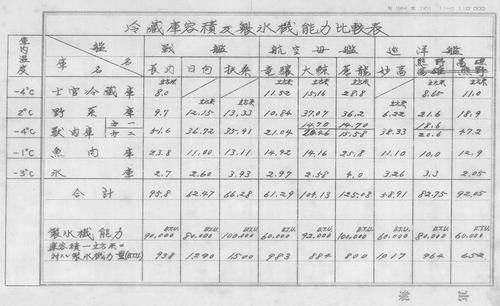 冷藏庫容積及製氷機能力比較表
庫内温度 艦名 庫名 戰艦 航空母艦 巡洋艦
長門 日向 扶桑 龍驤 大鯨 蒼龍 妙高 熊野 高雄
-4°C 士官冷藏庫 8.0 11.52 15.16 28.8 8.65 11.0
2°C 野菜庫 9.7 12.15 13.33 10.84 37.07 36.2 6.22 21.6 18.9
-4°C 獣肉庫 51.6 36.72 35.91 21.04 14.70 14.70 15.58 38.33 18.6 20.6 47.2
-1°C 魚肉庫 23.8 11.00 13.11 14.92 14.16 25.8 11.10 10.0 12.9
-3°C 氷庫 2.7 2.60 3.93 2.97 2.58 4.0 3.26 3.3 2.05
合計 95.8 62.47 66.28 61.29 104.13 125.08 58.91 82.75 92.05
製氷機能力 B.T.U. 90,000 80,000 100,000 60,000 92,000 100,000 60,000 80,000 60,000
庫容積一立方米ニ
対スル製氷機力量(B.T.U.) 938 1290 1500 983 884 800 1017 964 652